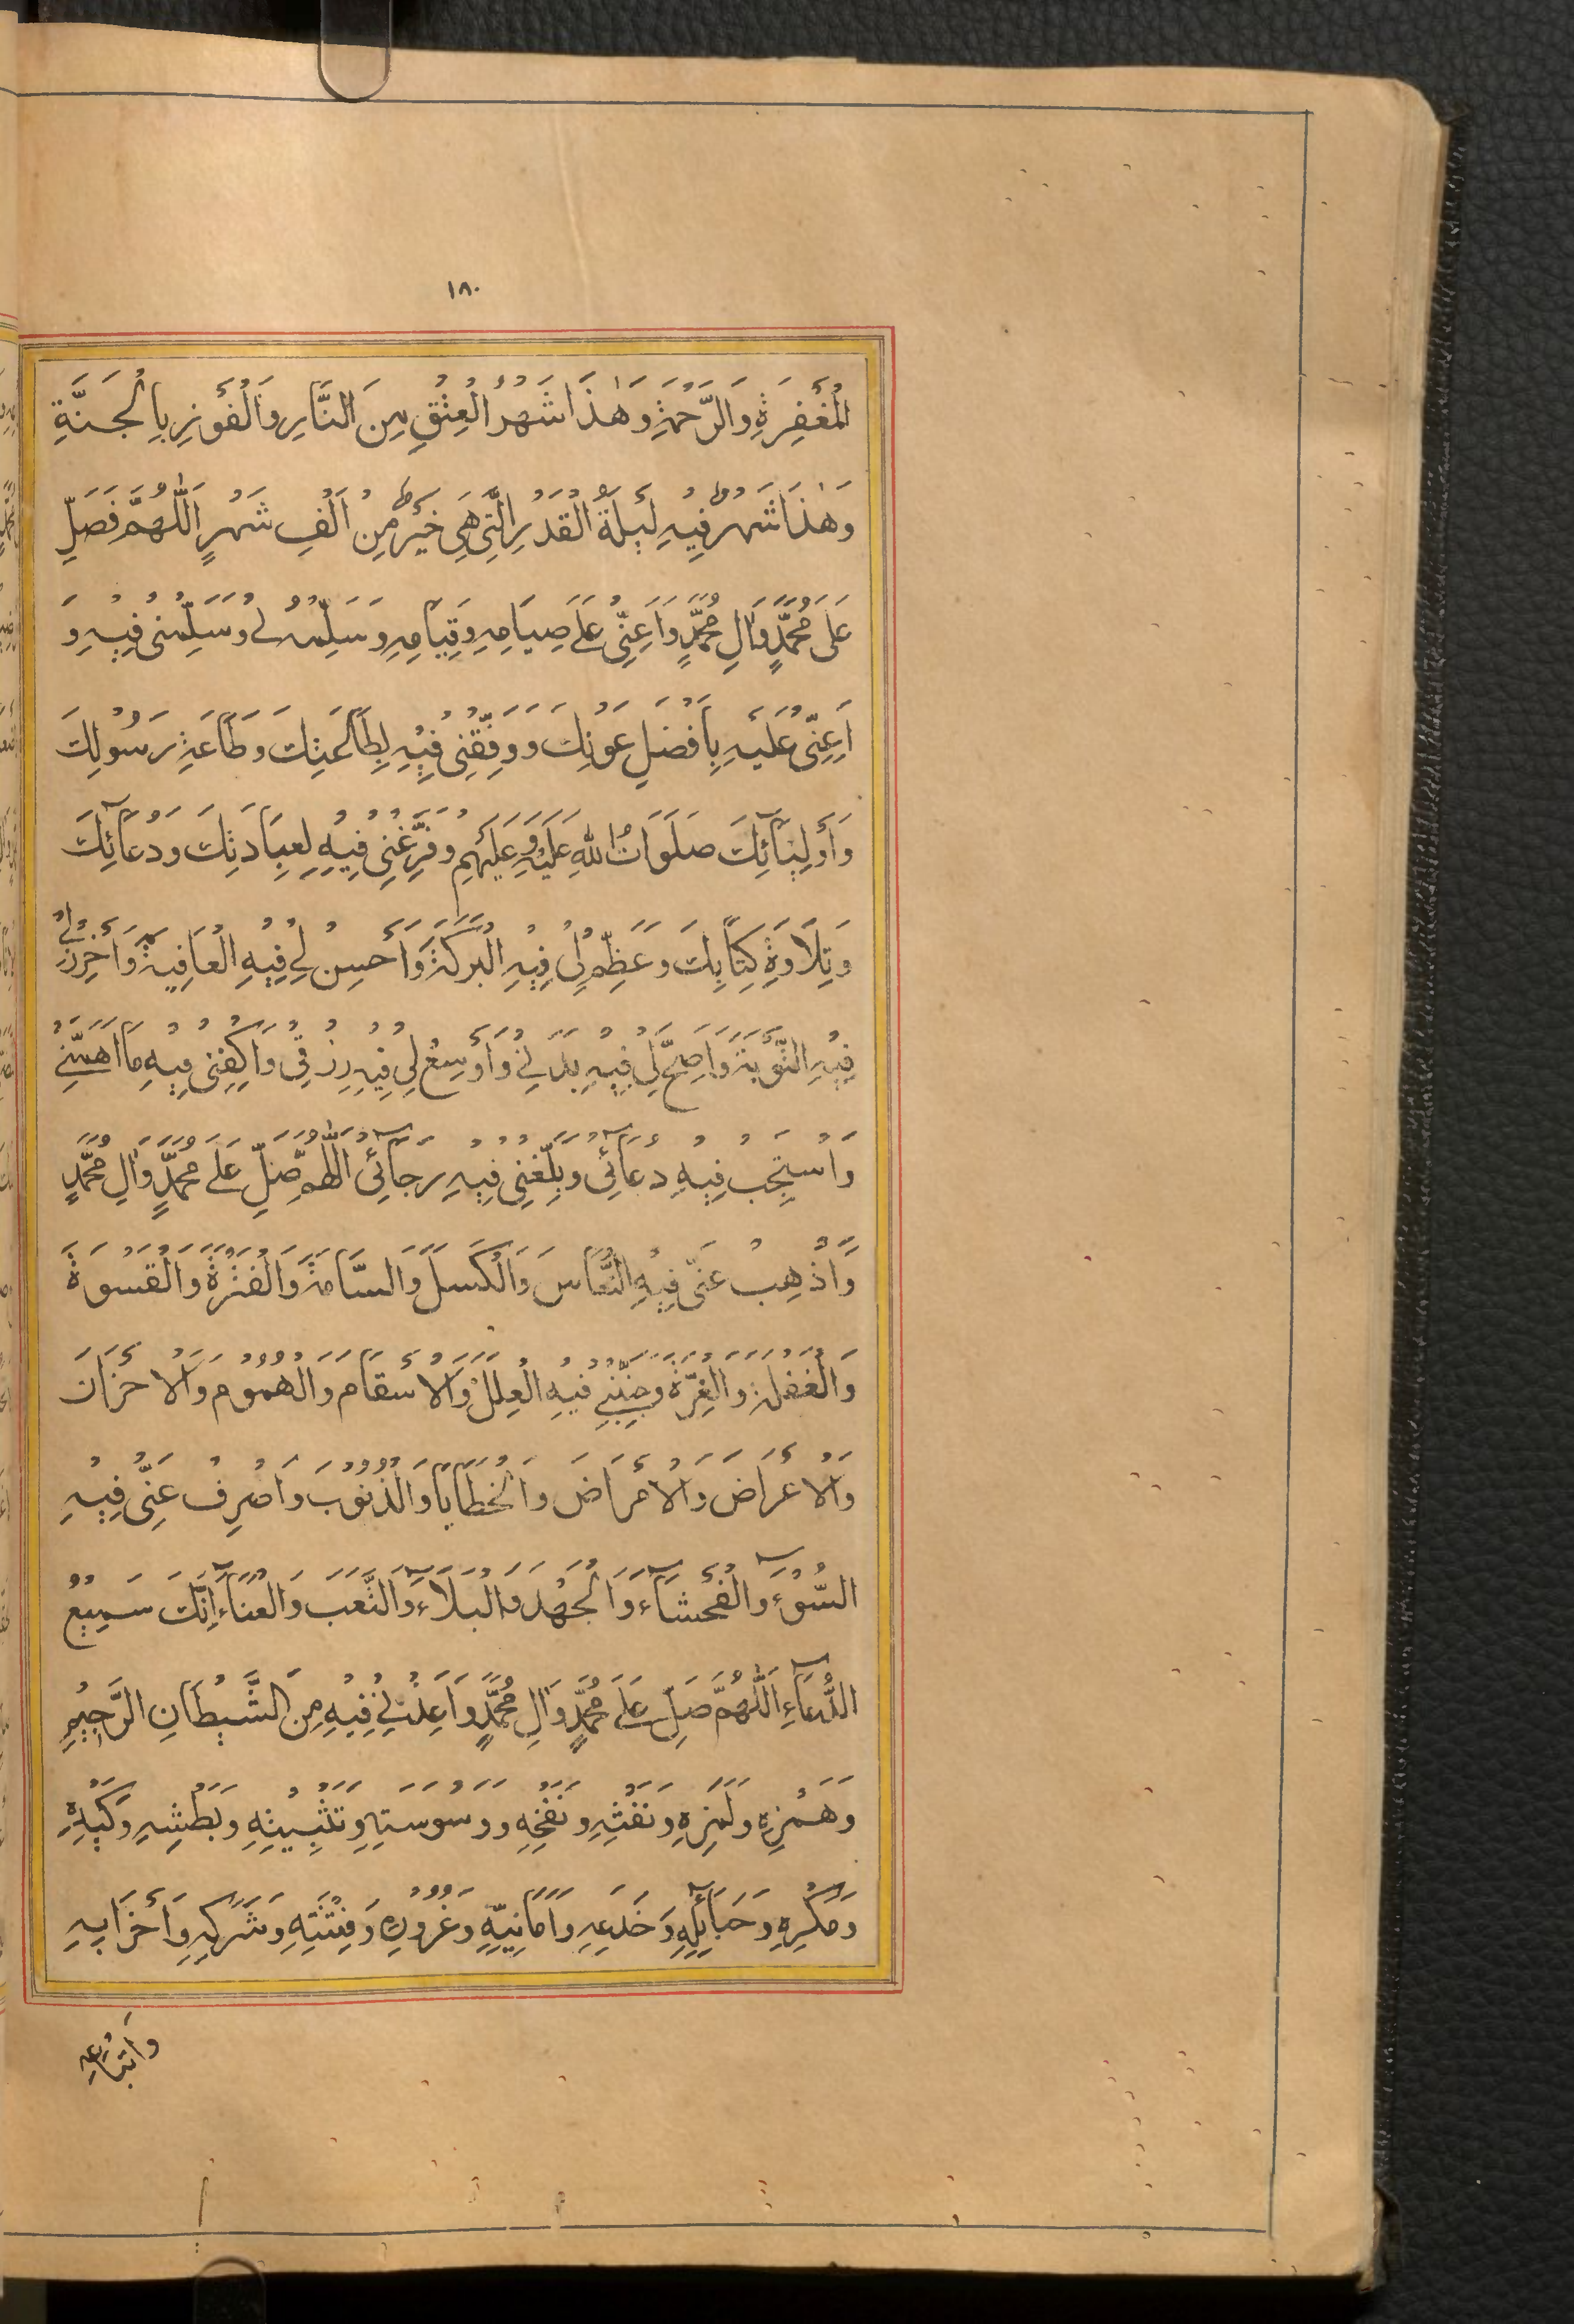 ١٨٠
الْمَغْفِرَةِ وَالرَّحْمَةِ وَهٰذَا شَهْرُ الْعِتْقِ مِنَ النَّارِ وَالْفَوْزِ بِالْجَنَّةِ
وَهٰذَا شَهْرٌ فِيهِ لَيْلَةُ الْقَدْرِ الَّتِي هِيَ خَيْرٌ مِنْ اَلْفِ شَهْرٍ اَللّٰهُمَّ فَصَلِّ
عَلَى مُحَمَّدٍ وَآلِ مُحَمَّدٍ وَاَعِنِّي عَلَى صِيَامِهِ وَقِيَامِهِ وَسَلِّمْهُ لِي وَسَلِّمْنِي فِيهِ وَ
اَعِنِّي عَلَيْهِ بِاَفْضَلِ عَوْنِكَ وَوَفِّقْنِي فِيهِ لِطَاعَتِكَ وَطَاعَةِ رَسُولِكَ
وَأَوْلِيَآئِكَ صَلَوَاتُ اللهِ عَلَيْهِ وَعَلَيْهِمْ وَفَرِّغْنِي فِيهِ لِعِبَادَتِكَ وَدُعَآئِكَ
وَتِلَاوَةِ كِتَابِكَ وَعَظِّمْ لِي فِيهِ الْبَرَكَةَ وَأَحْسِنْ لِي فِيهِ الْعَافِيَةَ وَأَحْرِزْ لِي
فِيهِ التَّوْبَةَ وَاَصِحَّ لِي فِيهِ بَدَنِي وَأَوْسِعْ لِي فِيهِ رِزْقِي وَاكْفِنِي فِيهِ مَا اَهَمَّنِي
وَاسْتَجِبْ فِيهِ دُعَآئِي وَبَلِّغْنِي فِيهِ رَجَآئِي اَللّٰهُمَّ صَلِّ عَلَى مُحَمَّدٍ وَآلِ مُحَمَّدٍ
وَّاَذْهِبْ عَنِّي فِيهِ النُّعَاسَ وَالْكَسَلَ وَالسَّامَةَ وَالْفَتْرَةَ وَالْقَسْوَةَ
وَالْغَفْلَةَ وَالْغِرَّةَ وَجَنِّبْنِي فِيهِ الْعِلَلَ وَالْاَسْقَامَ وَالْهُمُومَ وَالْاَحْزَانَ
وَالْاَعْرَاضَ وَالْاَمْرَاضَ وَالْخَطَايَا وَالذُّنُوبَ وَاصْرِفْ عَنِّي فِيهِ
السُّوْءَ وَالْفَحْشَآءَ وَالْجَهْدَ وَالْبَلَآءَ وَالتَّعَبَ وَالْعَنَآءَ اِنَّكَ سَمِيعُ
الدُّعَآءِ اَللّٰهُمَّ صَلِّ عَلَى مُحَمَّدٍ وَآلِ مُحَمَّدٍ وَاَعِذْنِي فِيهِ مِنَ الشَّيْطَانِ الرَّجِيمِ
وَهَمْزِهِ وَلَمْزِهِ وَنَفْثِهِ وَنَفْخِهِ وَوَسْوَسَتِهِ وَتَثْبِيتِهِ وَبَطْشِهِ وَكَيْدِهِ
وَمَكْرِهِ وَحَبَآئِلِهِ وَخَدْعِهِ وَاَمَانِيِّهِ وَغُرُورِهِ وَفِتْنَتِهِ وَشَرَكِهِ وَأَحْزَابِهِ
وَاَتْبَاعِهِ